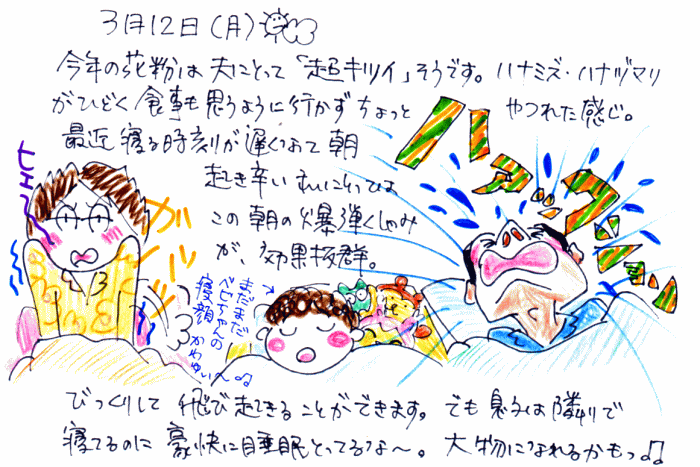 3月12日（月）
今年の花粉は夫にとって「超キツイ」そうです。ハナミズ・ハナヅマリ
がひどく食事も思うように行かずちょっと やつれた感じ。
最近寝る時刻が遅くなって朝
起き辛いわたしにとっては
この朝の爆弾くしゃみ
が、効果抜群。
ヒェ〜
ガバッ
まだまだ
ベビちゃんの
寝顔
かわゆい〜
ハァックション
びっくりして飛び起きることができます。でも息子は隣りで
寝てるのに豪快に睡眠とってるな〜。大物になれるかもっ♫